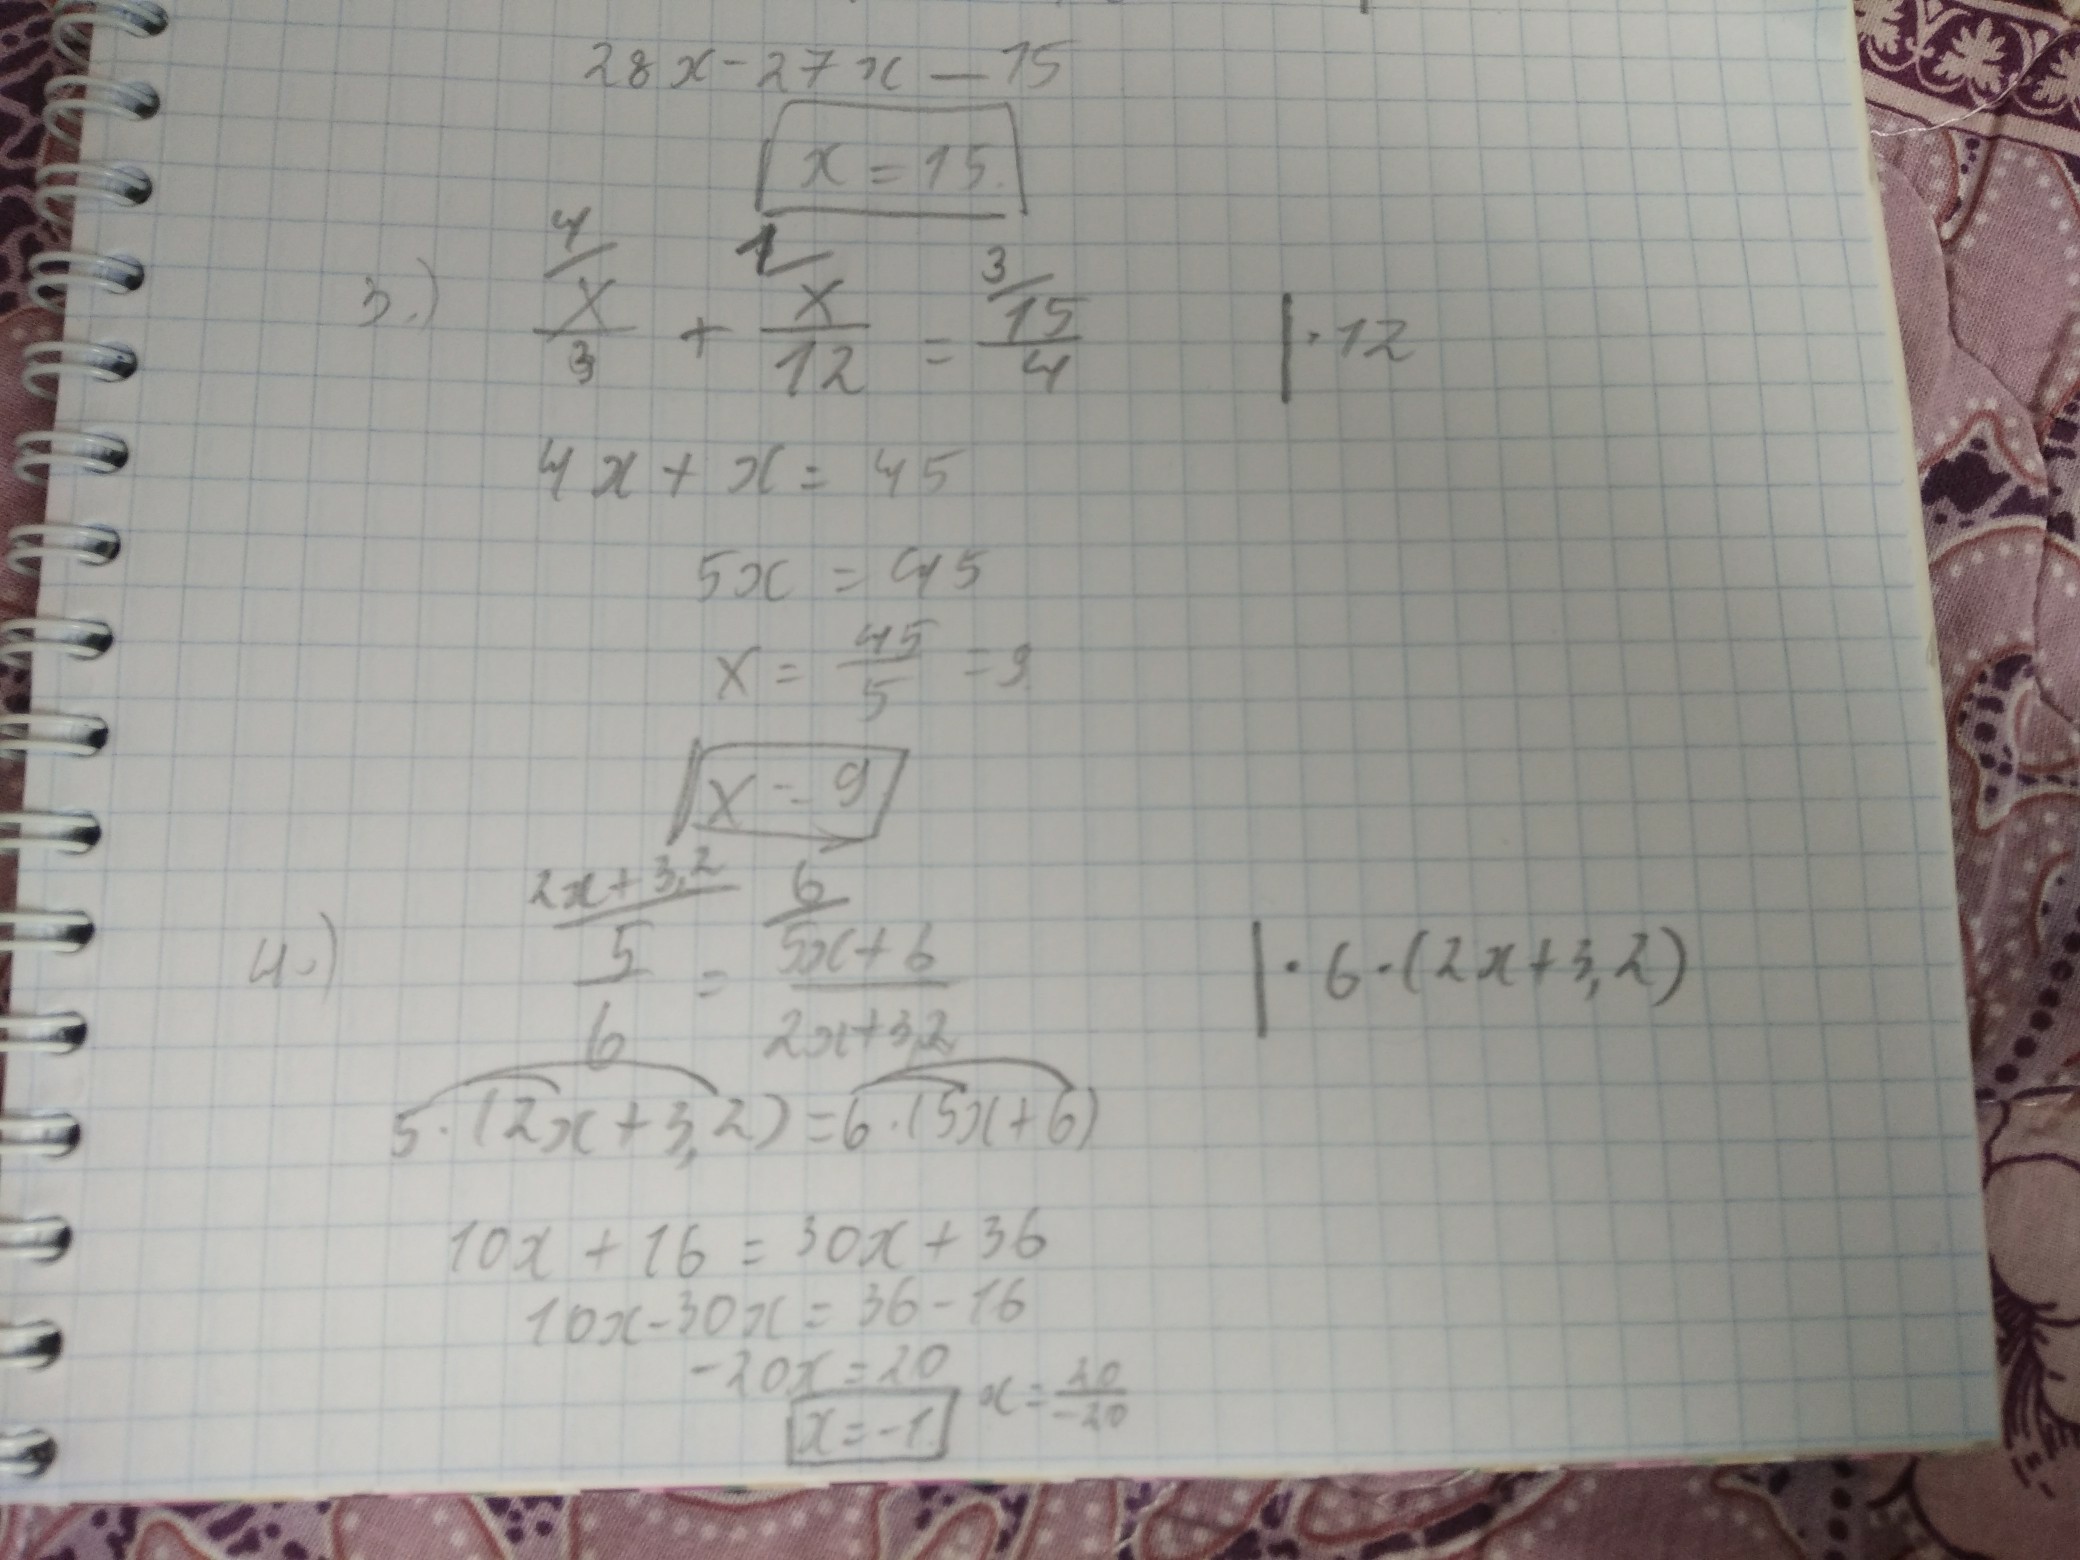 28x-27x — 15
x = 15.
4 1 3
3.) x/3 + x/12 = 15/4 | · 12
4x + x = 45
5x = 45
x = 45/5 = 9
x = 9
2x+3,2 6
4.) 5/6 = 5x+6/2x+3,2 | · 6 · (2x+3,2)
5 · (2x+3,2) = 6 · (5x+6)
10x + 16 = 30x + 36
10x-30x = 36-16
-20x = 20 x = 20/-20
x = -1.